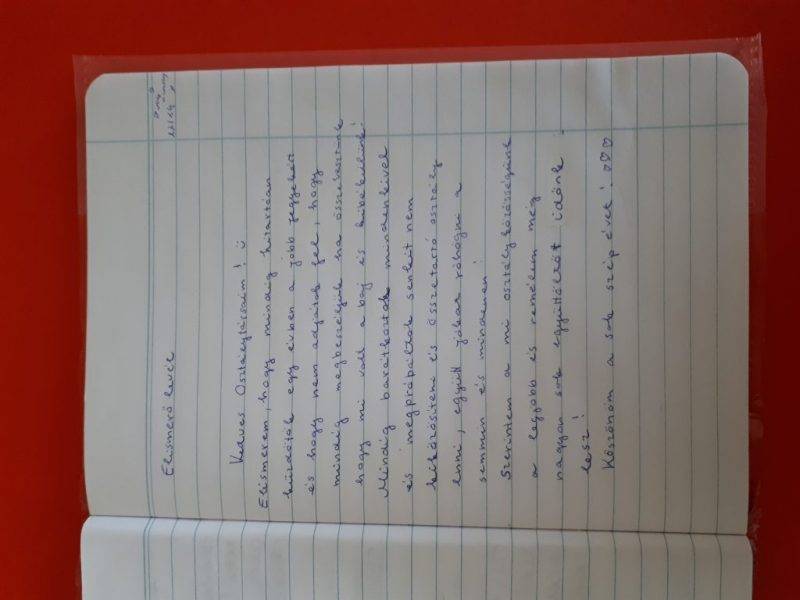 Elismerő levél
Kedves Osztálytársaim! ☺
Elismerem, hogy mindig kitartóan
küzdötök egy évben a jobb jegyekért
és hogy nem adjátok fel, hogy
mindig megbeszéljük ha összevesztünk
hogy mi volt a baj és kibékülünk!
Mindig barátkoztok mindenkivel
és megpróbáltok senkit nem
kiközösíteni és összetartó osztály
lenni, együtt jókat röhögni a
semmin és mindenen!
Szerintem a mi osztályközösségünk
a legjobb és remélem még
nagyon sok együttöltött időnk
lesz!
Köszönöm a sok szép évet! ♡♡♡